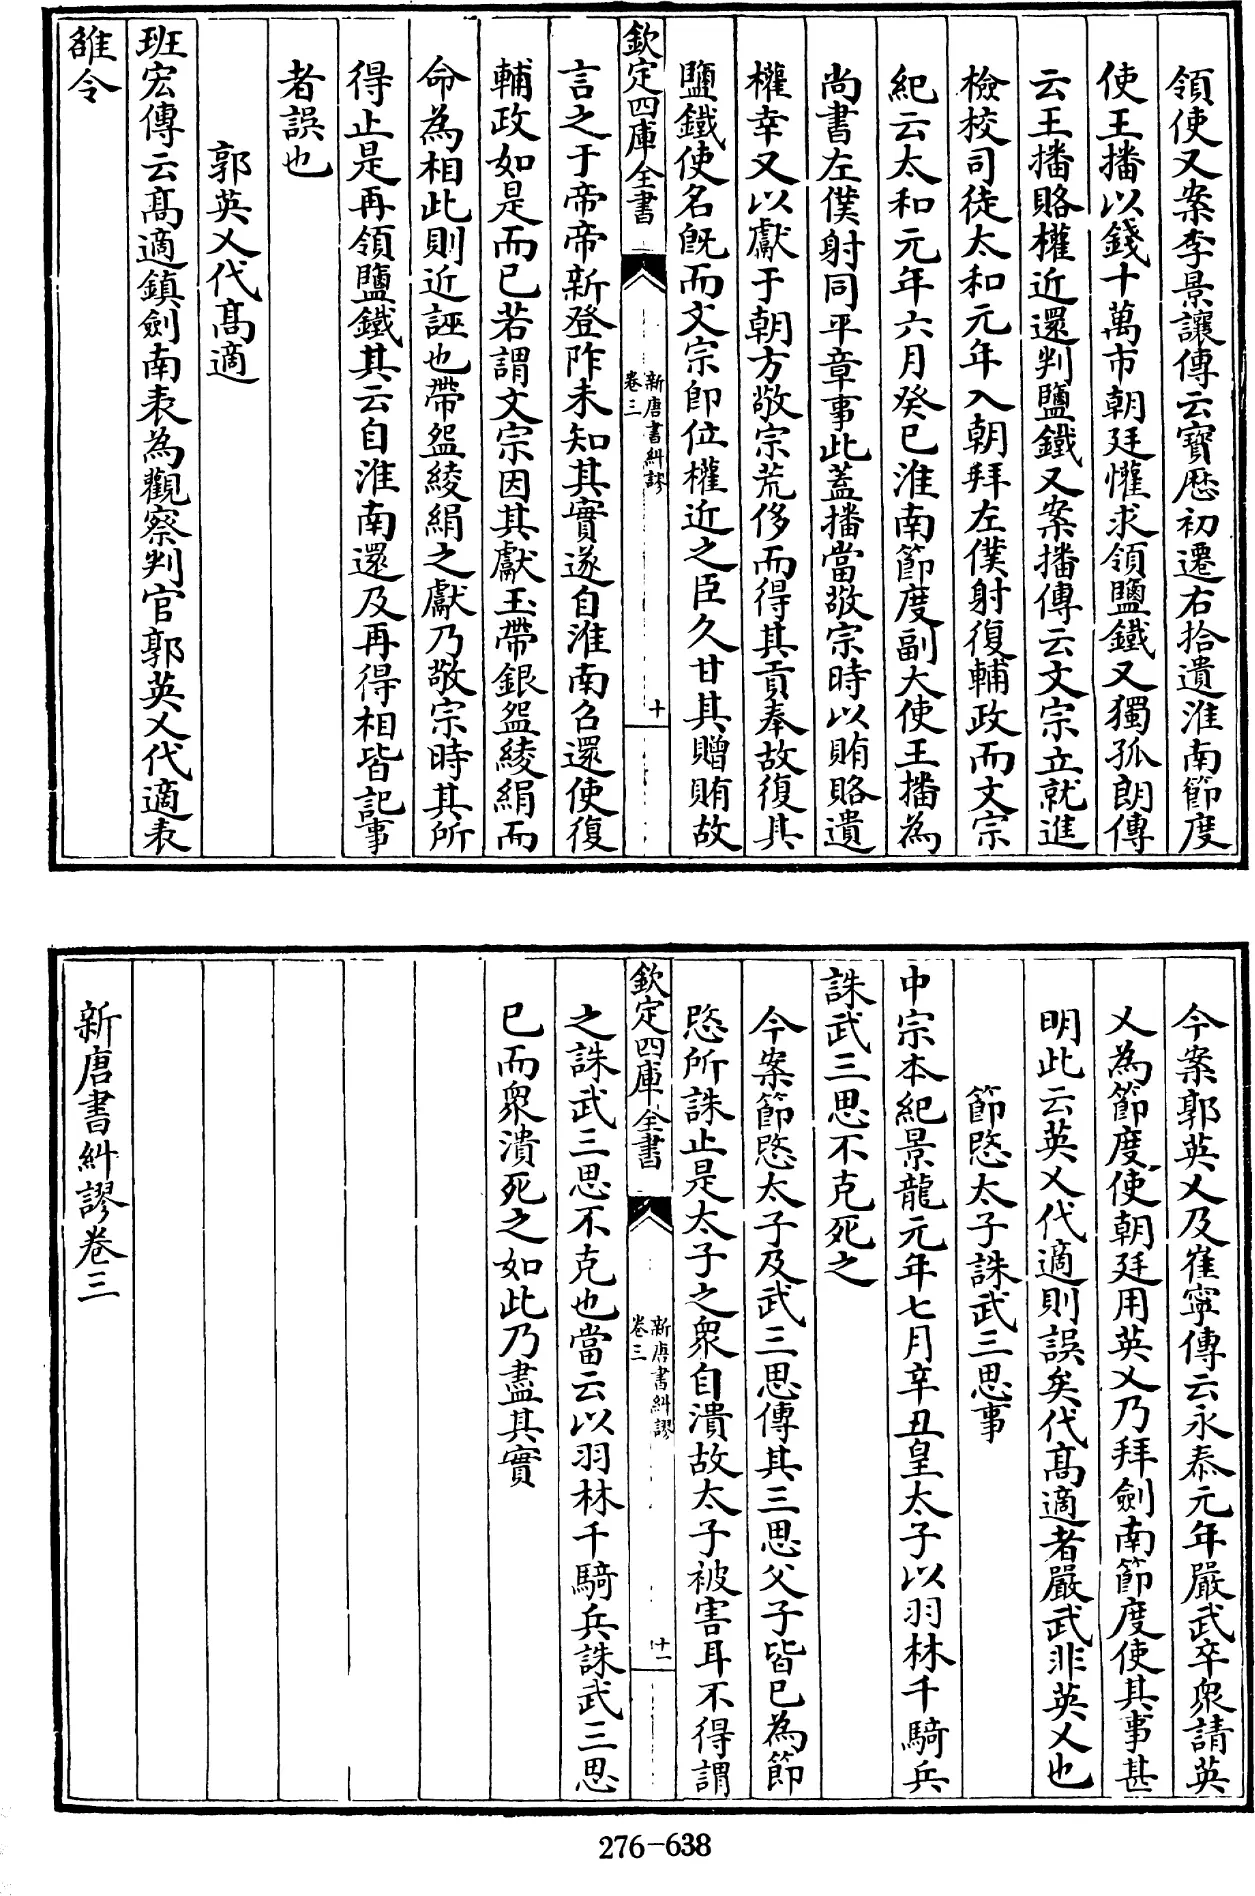 領使又案李景讓傳云寳厯初遷右拾遺淮南節度
使王播以錢十萬市朝廷懽求領鹽鐵又獨孤朗傳
云王播賂權近還判鹽鐵又案播傳云文宗立就進
檢校司徒太和元年入朝拜左僕射復輔政而文宗
紀云太和元年六月癸巳淮南節度副大使王播為
尚書左僕射同平章事此蓋播當敬宗時以賄賂遺
權幸又以獻于朝方敬宗荒侈而得其貢奉故復其
鹽鐵使名既而文宗卽位權近之臣久甘其贈賄故
欽定四庫全書
新唐書糾謬
卷三
十
言之于帝帝新登阼未知其實遂自淮南召還使復
輔政如是而已若謂文宗因其獻玉帶銀盌綾絹而
命為相此則近誣也帶盌綾絹之獻乃敬宗時其所
得止是再領鹽鐵其云自淮南還及再得相皆記事
者誤也
郭英乂代髙適
班宏傳云髙適鎮劍南表為觀察判官郭英乂代適表
雒令
今案郭英乂及崔寧傳云永泰元年嚴武卒衆請英
乂為節度使朝廷用英乂乃拜劍南節度使其事甚
明此云英乂代適則誤矣代髙適者嚴武非英乂也
節愍太子誅武三思事
中宗本紀景龍元年七月辛丑皇太子以羽林千騎兵
誅武三思不克死之
今案節愍太子及武三思傳其三思父子皆已為節
愍所誅止是太子之衆自潰故太子被害耳不得謂
欽定四庫全書
新唐書糾謬
卷三
十一
之誅武三思不克也當云以羽林千騎兵誅武三思
已而衆潰死之如此乃盡其實
新唐書糾謬卷三
276-638